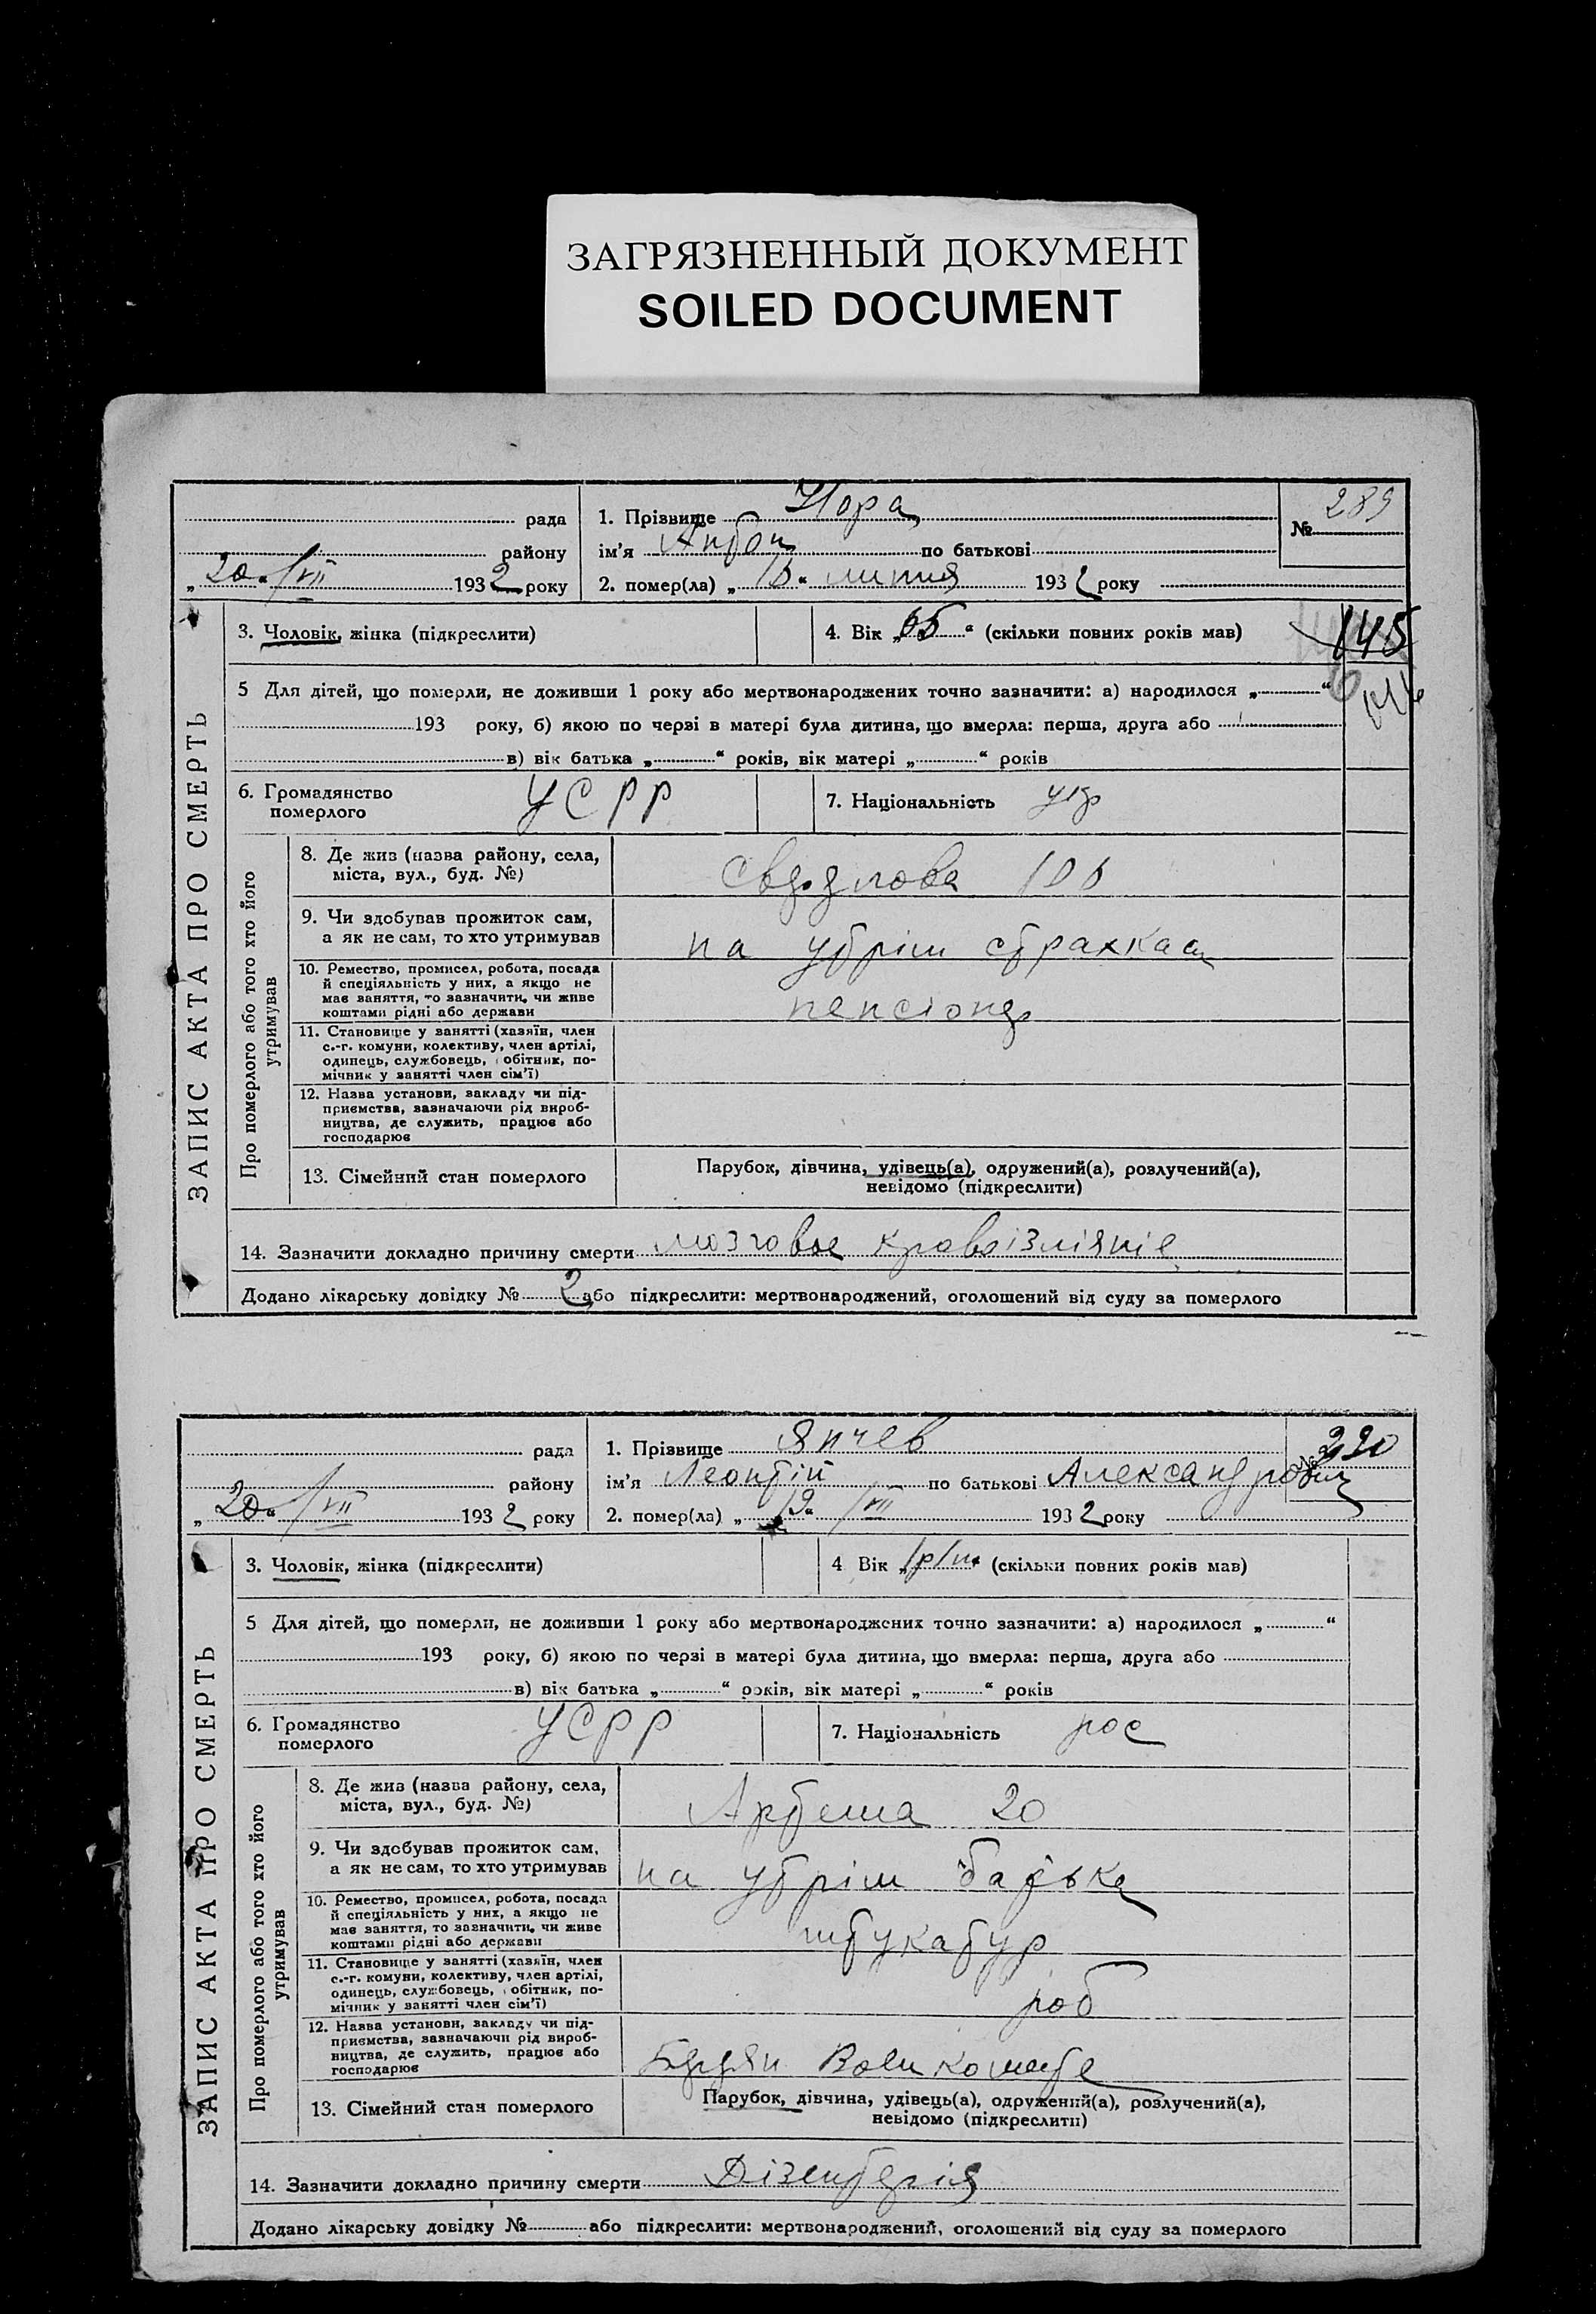 ЗАГРЯЗНЕННЫЙ ДОКУМЕНТ
SOILED DOCUMENT
ЗАПИС АКТА ПРО СМЕРТЬ
рада
району
„20“/VII 1932 року
1. Прізвище Нора
ім'я Антон по батькові
2. помер(ла) „ “ липня 1932 року
№ 289
3. Чоловік, жінка (підкреслити)
4. Вік „65“ (скільки повних років мав)
145
5 Для дітей, що померли, не доживши 1 року або мертвонароджених точно зазначити: а) народилося „ “
193 року, б) якою по черзі в матері була дитина, що вмерла: перша, друга або
в) вік батька „ “ років, вік матері „ “ років
6. Громадянство померлого УСРР
7. Національність укр
Про померлого або того хто його утримував
8. Де жив (назва району, села,
міста, вул., буд. №)
Свердлова
9. Чи здобував прожиток сам,
а як не сам, то хто утримував
на утрім страхкаси
10. Ремество, промисел, робота, посада
й спеціяльність у них, а якщо не
має заняття, то зазначити, чи живе
коштами рідні або держави
пенсіонер
11. Становище у занятті (хазяїн, член
с.-г. комуни, колективу, член артілі,
одинець, службовець, обітник, по-
мічник у занятті член сім'ї)
12. Назва установи, закладу чи під-
приємства, зазначаючи рід вироб-
ництва, де служить, працює або
господарює
13. Сімейний стан померлого
Парубок, дівчина, удівець(а), одружений(а), розлучений(а),
невідомо (підкреслити)
14. Зазначити докладно причину смерти мозговое кровоізліяніе
Додано лікарську довідку № 2 або підкреслити: мертвонароджений, оголошений від суду за померлого
ЗАПИС АКТА ПРО СМЕРТЬ
рада
району
„20“/VII 1932 року
1. Прізвище Янчев
ім'я Леонтій по батькові Александрович
2. помер(ла) „19“/VII 1932 року
№ 290
3. Чоловік, жінка (підкреслити)
4 Вік „1р1м“ (скільки повних років мав)
5 Для дітей, що померли, не доживши 1 року або мертвонароджених точно зазначити: а) народилося „ “
193 року, б) якою по черзі в матері була дитина, що вмерла: перша, друга або
в) вік батька „ “ років, вік матері „ “ років
6. Громадянство померлого УСРР
7. Національність рос
Про померлого або того хто його утримував
8. Де жив (назва району, села,
міста, вул., буд. №)
Артема 20
9. Чи здобував прожиток сам,
а як не сам, то хто утримував
на утрім батька
10. Ремество, промисел, робота, посада
й спеціяльність у них, а якщо не
має заняття, то зазначити, чи живе
коштами рідні або держави
штукатур
11. Становище у занятті (хазяїн, член
с.-г. комуни, колективу, член артілі,
одинець, службовець, обітник, по-
мічник у занятті член сім'ї)
роб
12. Назва установи, закладу чи під-
приємства, зазначаючи рід вироб-
ництва, де служить, працює або
господарює
13. Сімейний стан померлого
Парубок, дівчина, удівець(а), одружений(а), розлучений(а),
невідомо (підкреслити)
14. Зазначити докладно причину смерти Дізентерія
Додано лікарську довідку № або підкреслити: мертвонароджений, оголошений від суду за померлого